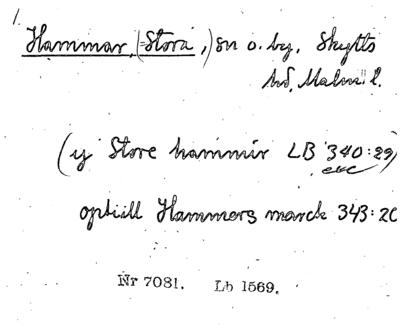 1.
Hammar, (=Stora,) sn o. by, Skytts
hd, Malm. l.
(y Store hammür LB 340:29)
etc
optiill Hammers marck 343:20
Nr 7081. Lb 1569.